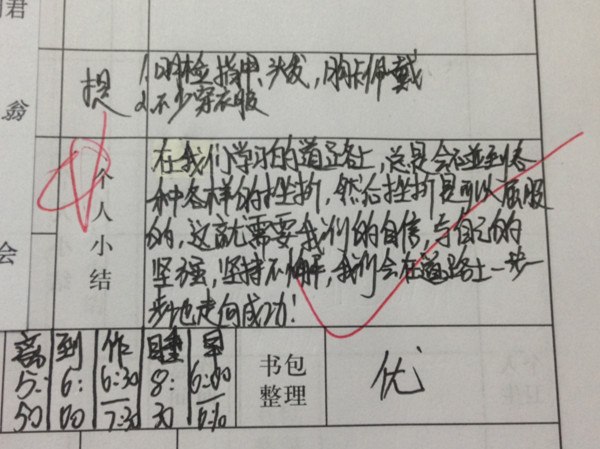 君
翁
会
提
1.明检指甲、头发,胸卡佩戴
2.不少穿衣服
个人小结
在我们学习的道路上,总是会碰到各
种各样的挫折,然后挫折是可以屈服
的,这就需要我们的自信,与自己的
坚强,坚持不懈,我们会在道路上一步一
步地走向成功!
离 到 作 睡 早
5:50 6:00 6:30/7:30 8:30 6:00/6:10
书包
整理
优